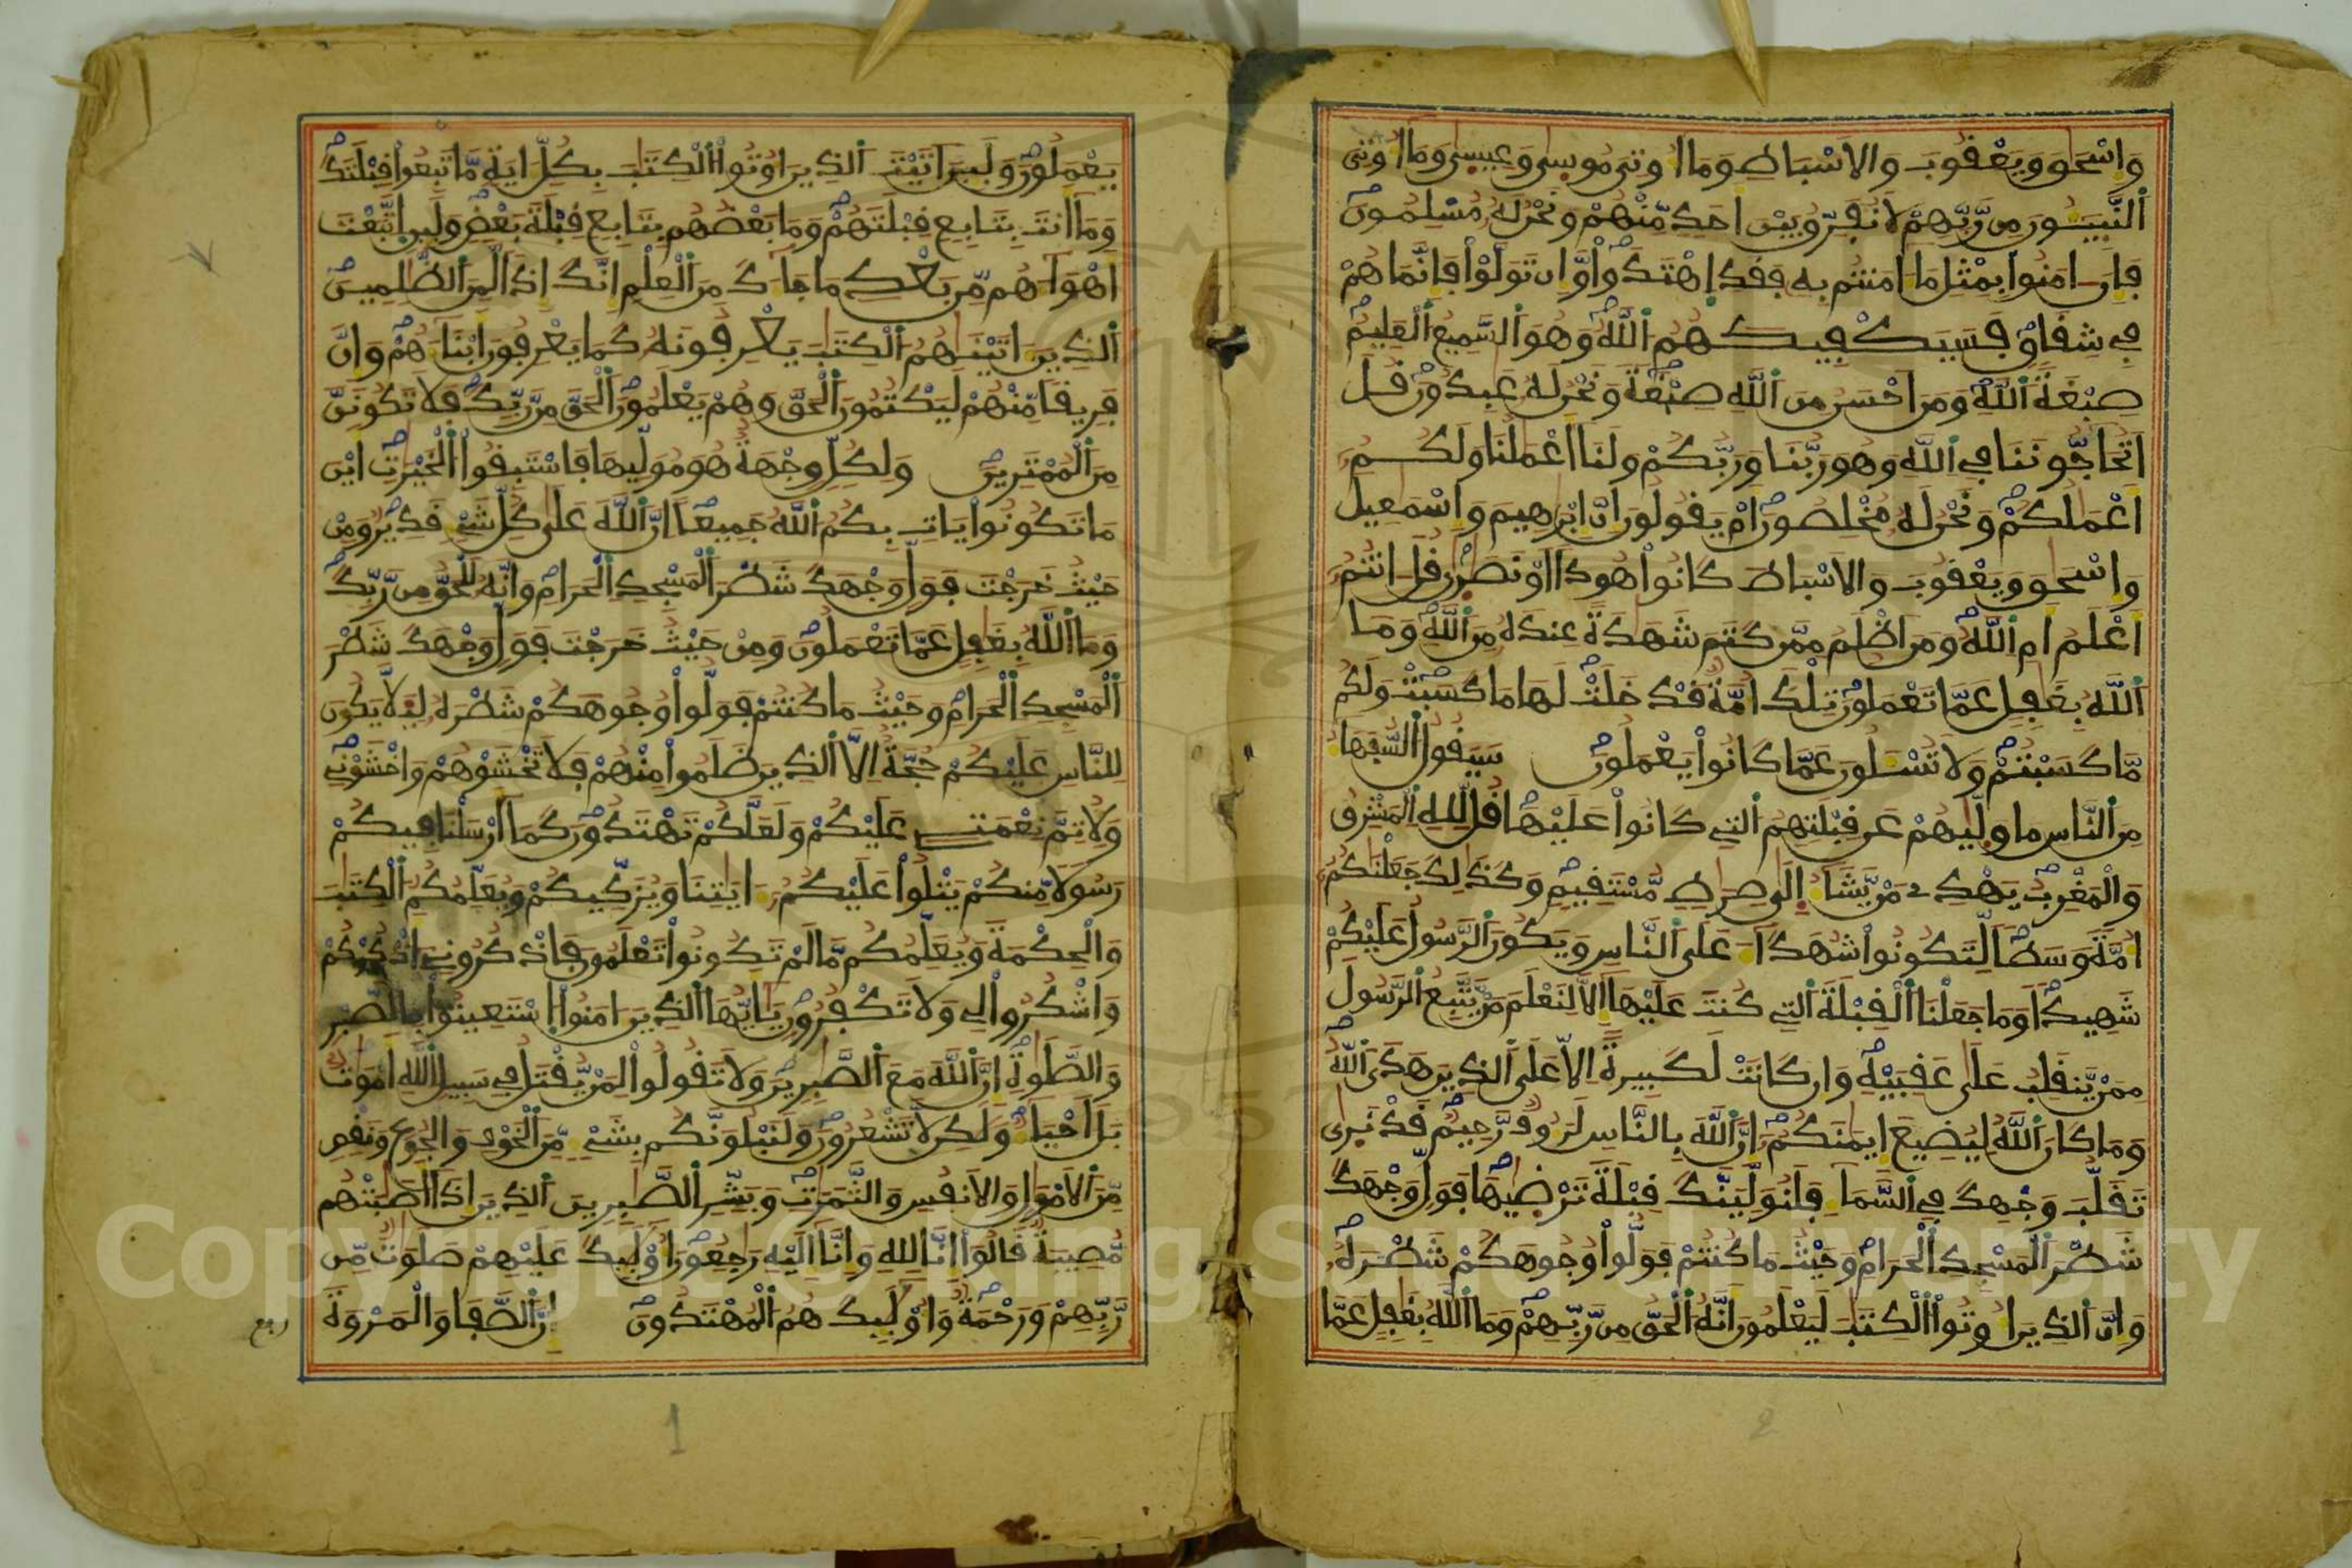 وَإِسْحَٰقَ وَيَعْقُوبَ وَالأَسْبَاطِ وَمَا أُوتِيَ مُوسِىٰ وَعِيسِىٰ وَمَا أُوتِيَ
النَّبِيـُٔونَ مِن رَّبِّهِمْ لَا نُفَرِّقُ بَيْنَ أَحَدٍ مِّنْهُمْ وَنَحْنُ لَهُ مُسْلِمُونَ
فَإِنَ ـامَنُوا بِمِثْلِ مَا ءَامَنتُم بِهِ فَقَدِ اِهْتَدَوا وَّإِن تَوَلَّوْا فَإِنَّمَا هُمْ
فِي شِقَاقٍ فَسَيَكْفِيكَهُمُ اللَّهُ وَهُوَ السَّمِيعُ الْعَلِيمُ
صِبْغَةَ اللَّهِ وَمَنَ احْسَنُ مِنَ اللَّهِ صِبْغَةً وَنَحْنُ لَهُ عَٰبِدُونَ قُلَ
اَتُحَاجُّونَنَا فِي اللَّهِ وَهُوَ رَبُّنَا وَرَبُّكُمْ وَلَنَا أَعْمَٰلُنَا وَلَكُمُ
أَعْمَٰلُكُمْ وَنَحْنُ لَهُ مُخْلِصُونَ أَمْ يَقُولُونَ إِنَّ إِبْرَٰهِيمَ وَإِسْمَٰعِيلَ
وَإِسْحَٰقَ وَيَعْقُوبَ وَالأَسْبَاطَ كَانُوا هُودًا أَوْ نَصَٰرِىٰ قُلَ ـانتُمُ
أَعْلَمُ أَمِ اللَّهُ وَمَنَ اظْلَمُ مِمَّن كَتَمَ شَهَٰدَةً عِندَهُ مِنَ اللَّهِ وَمَا
اللَّهُ بِغَٰفِلٍ عَمَّا تَعْمَلُونَ تِلْكَ أُمَّةٌ قَدْ خَلَتْ لَهَا مَا كَسَبَتْ وَلَكُم
مَّا كَسَبْتُمْ وَلَا تُسْـَٔلُونَ عَمَّا كَانُوا يَعْمَلُونَ سَيَقُولُ السُّفَهَاءُ
مِنَ النَّاسِ مَا وَلّٰيهُمْ عَن قِبْلَتِهِمُ التِي كَانُوا عَلَيْهَا قُل لِّلهِ الْمَشْرِقُ
وَالْمَغْرِبُ يَهْدِي مَنْ يَّشَاءُ إِلَىٰ صِرَٰطٍ مُّسْتَقِيمٍ وَكَذَٰلِكَ جَعَلْنَٰكُمُ
أُمَّةً وَسَطًا لِّتَكُونُوا شُهَدَاءَ عَلَى النَّاسِ وَيَكُونَ الرَّسُولُ عَلَيْكُمْ
شَهِيدًا وَمَا جَعَلْنَا الْقِبْلَةَ التِي كُنتَ عَلَيْهَا إِلَّا لِنَعْلَمَ مَنْ يَّتَّبِعُ الرَّسُولَ
مِمَّنْ يَّنقَلِبُ عَلَىٰ عَقِبَيْهِ وَإِن كَانَتْ لَكَبِيرَةً إِلَّا عَلَى الذِينَ هَدَى اللَّهُ
وَمَا كَانَ اللَّهُ لِيُضِيعَ إِيمَٰنَكُمُ إِنَّ اللَّهَ بِالنَّاسِ لَرَءُوفٌ رَّحِيمٌ قَدْ نَرِىٰ
تَقَلُّبَ وَجْهِكَ فِي السَّمَاءِ فَلَنُوَلِّيَنَّكَ قِبْلَةً تَرْضِيٰهَا فَوَلِّ وَجْهَكَ
شَطْرَ الْمَسْجِدِ الْحَرَامِ وَحَيْثُ مَا كُنتُمْ فَوَلُّوا وُجُوهَكُمْ شَطْرَهُ
وَإِنَّ الذِينَ أُوتُوا الْكِتَٰبَ لَيَعْلَمُونَ أَنَّهُ الْحَقُّ مِن رَّبِّهِمْ وَمَا اللَّهُ بِغَٰفِلٍ عَمَّا
يَعْمَلُونَ وَلَئِنَ اتَيْتَ الذِينَ أُوتُوا الْكِتَٰبَ بِكُلِّ ءَايَةٍ مَّا تَبِعُوا قِبْلَتَكَ
وَمَا أَنتَ بِتَابِعٍ قِبْلَتَهُمْ وَمَا بَعْضُهُم بِتَابِعٍ قِبْلَةَ بَعْضٍ وَلَئِنِ اتَّبَعْتَ
أَهْوَاءَهُم مِّن بَعْدِ مَا جَاءَكَ مِنَ الْعِلْمِ إِنَّكَ إِذًا لَّمِنَ الظَّٰلِمِينَ
الذِينَ ءَاتَيْنَٰهُمُ الْكِتَٰبَ يَعْرِفُونَهُ كَمَا يَعْرِفُونَ أَبْنَاءَهُمْ وَإِنَّ
فَرِيقًا مِّنْهُمْ لَيَكْتُمُونَ الْحَقَّ وَهُمْ يَعْلَمُونَ الْحَقُّ مِن رَّبِّكَ فَلَا تَكُونَنَّ
مِنَ الْمُمْتَرِينَ وَلِكُلٍّ وِجْهَةٌ هُوَ مُوَلِّيهَا فَاسْتَبِقُوا الْخَيْرَٰتِ أَيْنَ
مَا تَكُونُوا يَاتِ بِكُمُ اللَّهُ جَمِيعًا إِنَّ اللَّهَ عَلَىٰ كُلِّ شَيْءٍ قَدِيرٌ وَمِنْ
حَيْثُ خَرَجْتَ فَوَلِّ وَجْهَكَ شَطْرَ الْمَسْجِدِ الْحَرَامِ وَإِنَّهُ لَلْحَقُّ مِن رَّبِّكَ
وَمَا اللَّهُ بِغَٰفِلٍ عَمَّا تَعْمَلُونَ وَمِنْ حَيْثُ خَرَجْتَ فَوَلِّ وَجْهَكَ شَطْرَ
الْمَسْجِدِ الْحَرَامِ وَحَيْثُ مَا كُنتُمْ فَوَلُّوا وُجُوهَكُمْ شَطْرَهُ لِيَلَّا يَكُونَ
لِلنَّاسِ عَلَيْكُمْ حُجَّةٌ إِلَّا الذِينَ ظَلَمُوا مِنْهُمْ فَلَا تَخْشَوْهُمْ وَاخْشَوْنِي
وَلِأُتِمَّ نِعْمَتِي عَلَيْكُمْ وَلَعَلَّكُمْ تَهْتَدُونَ كَمَا أَرْسَلْنَا فِيكُمْ
رَسُولًا مِّنكُمْ يَتْلُوا عَلَيْكُمُ ءَايَٰتِنَا وَيُزَكِّيكُمْ وَيُعَلِّمُكُمُ الْكِتَٰبَ
وَالْحِكْمَةَ وَيُعَلِّمُكُم مَّا لَمْ تَكُونُوا تَعْلَمُونَ فَاذْكُرُونِي أَذْكُرْكُمْ
وَاشْكُرُوا لِي وَلَا تَكْفُرُونِ يَٰأَيُّهَا الذِينَ ءَامَنُوا اسْتَعِينُوا بِالصَّبْرِ
وَالصَّلَوٰةِ إِنَّ اللَّهَ مَعَ الصَّٰبِرِينَ وَلَا تَقُولُوا لِمَنْ يُّقْتَلُ فِي سَبِيلِ اللَّهِ أَمْوَٰتٌ
بَلَ احْيَاءٌ وَلَٰكِن لَّا تَشْعُرُونَ وَلَنَبْلُوَنَّكُم بِشَيْءٍ مِّنَ الْخَوْفِ وَالْجُوعِ وَنَقْصٍ
مِّنَ الأَمْوَٰلِ وَالأَنفُسِ وَالثَّمَرَٰتِ وَبَشِّرِ الصَّٰبِرِينَ الذِينَ إِذَا أَصَٰبَتْهُم
مُّصِيبَةٌ قَالُوا إِنَّا لِلهِ وَإِنَّا إِلَيْهِ رَٰجِعُونَ أُوْلَٰئِكَ عَلَيْهِمْ صَلَوَٰتٌ مِّن
رَّبِّهِمْ وَرَحْمَةٌ وَأُوْلَٰئِكَ هُمُ الْمُهْتَدُونَ إِنَّ الصَّفَا وَالْمَرْوَةَ
ربع
1
2
Copyright © King Saud University